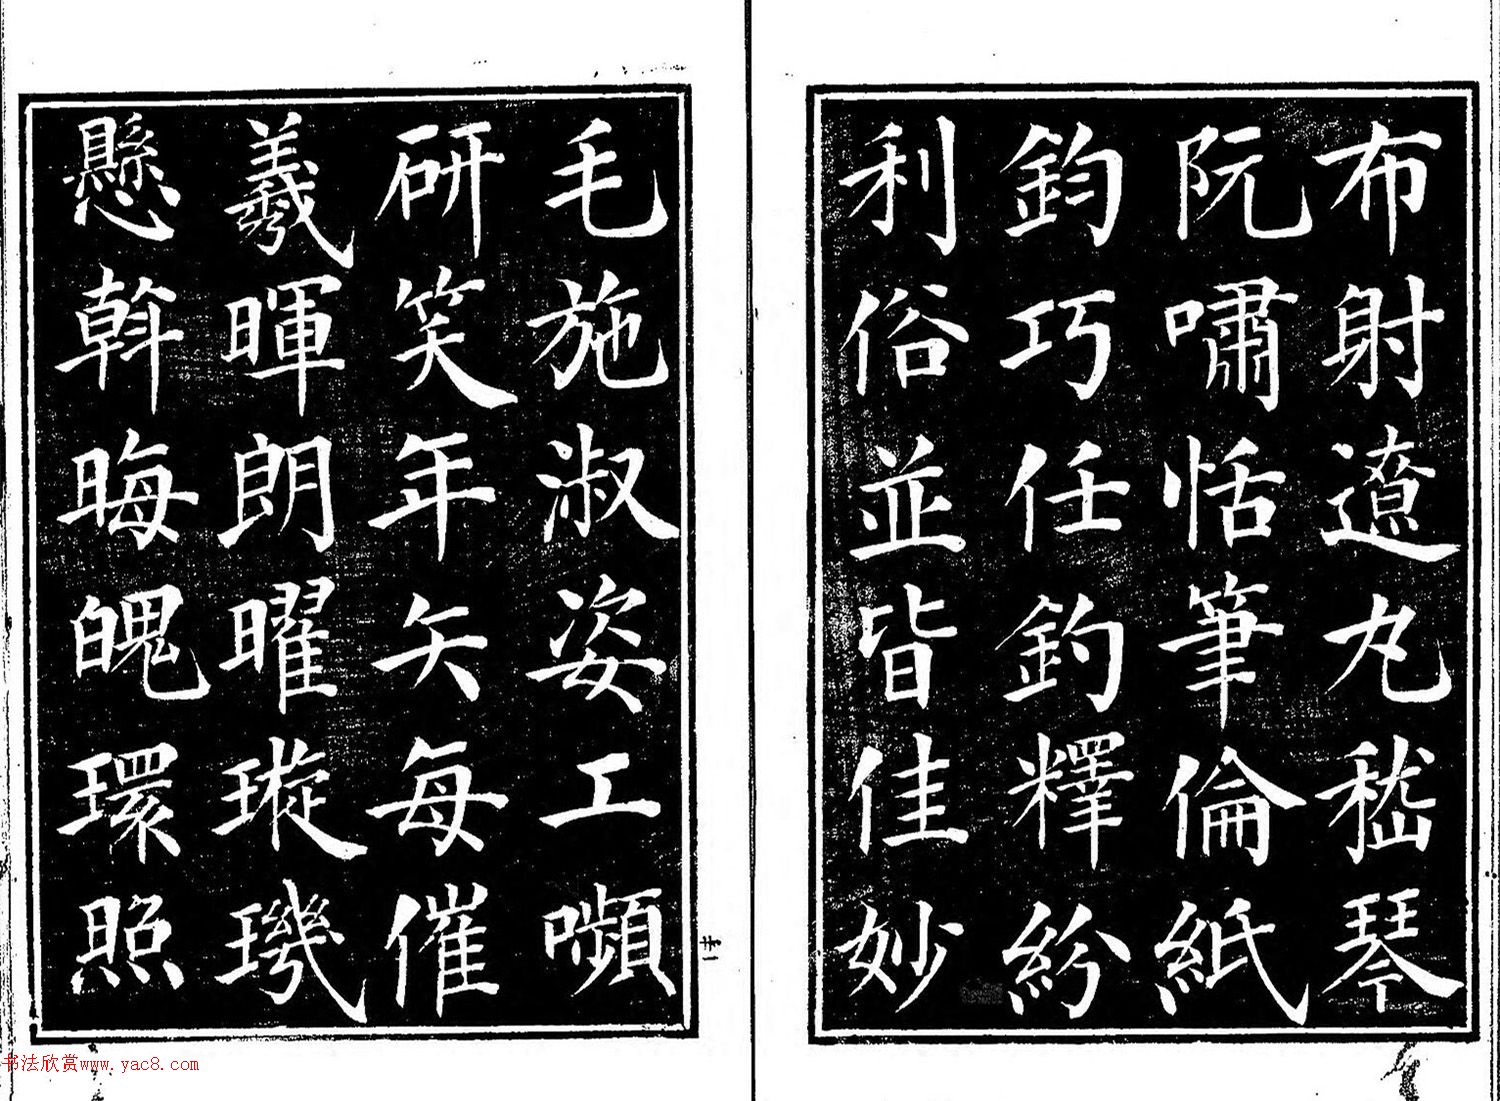 布射遼丸嵇琴
阮嘯恬筆倫紙
鈞巧任釣釋紛
利俗並皆佳妙
毛施淑姿工嚬
研笑年矢每催
羲暉朗曜璇璣
懸斡晦魄環照
书法欣赏www.yac8.com